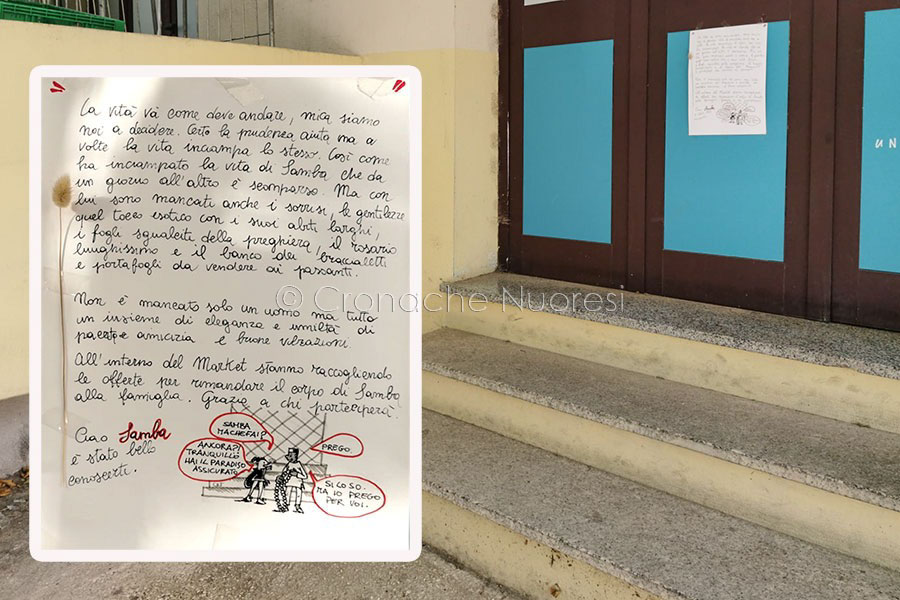 La vità và come deve andare, mica siamo
noi a decidere. Certo la prudenza aiuta ma a
volte la vita inciampa lo stesso. Così come
ha inciampato la vita di Samba che da
un giorno all'altro è scomparso. Ma con
lui sono mancati anche i sorrisi, le gentilezze
quel tocco esotico con i suoi abiti larghi,
i fogli sgualciti della preghiera, il rosario
lunghissimo e il banco dei braccialetti
e portafogli da vendere ai passanti.
Non è mancato solo un uomo ma tutto
un insieme di eleganza e umiltà di
pacatezza e amicizia e buone vibrazioni.
All'interno del Market stanno raccogliendo
le offerte per rimandare il corpo di Samba
alla famiglia. Grazie a chi parteciperà
Ciao Samba
è stato bello
conoscerti.
SAMBA
MACHEFAI?
PREGO.
ANCORA?!
TRANQUILLO
HAI IL PARADISO
ASSICURATO
SI LO SO.
MA IO PREGO
PER VOI.
© Cronache Nuoresi
UN